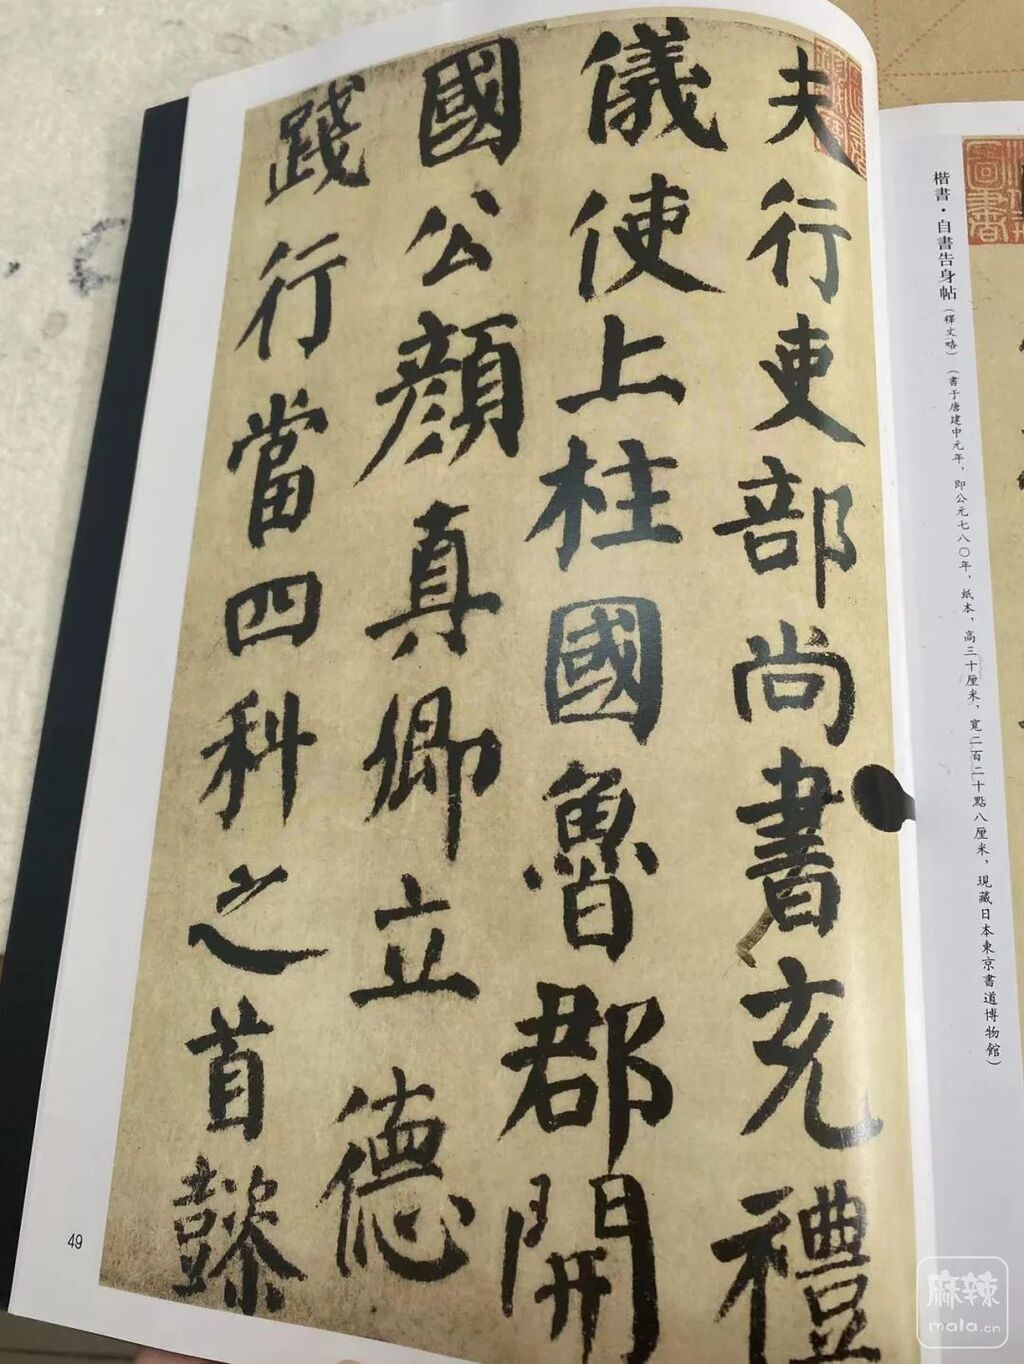 楷書·自書告身帖（釋文略）（書于唐建中元年，即公元七八〇年，紙本，高三十厘米，寬二百二十點八厘米，現藏日本東京書道博物館）
夫行吏部尚書充禮
儀使上柱國魯郡開
國公顏真卿立德
踐行當四科之首懿
49
麻辣
mala.cn